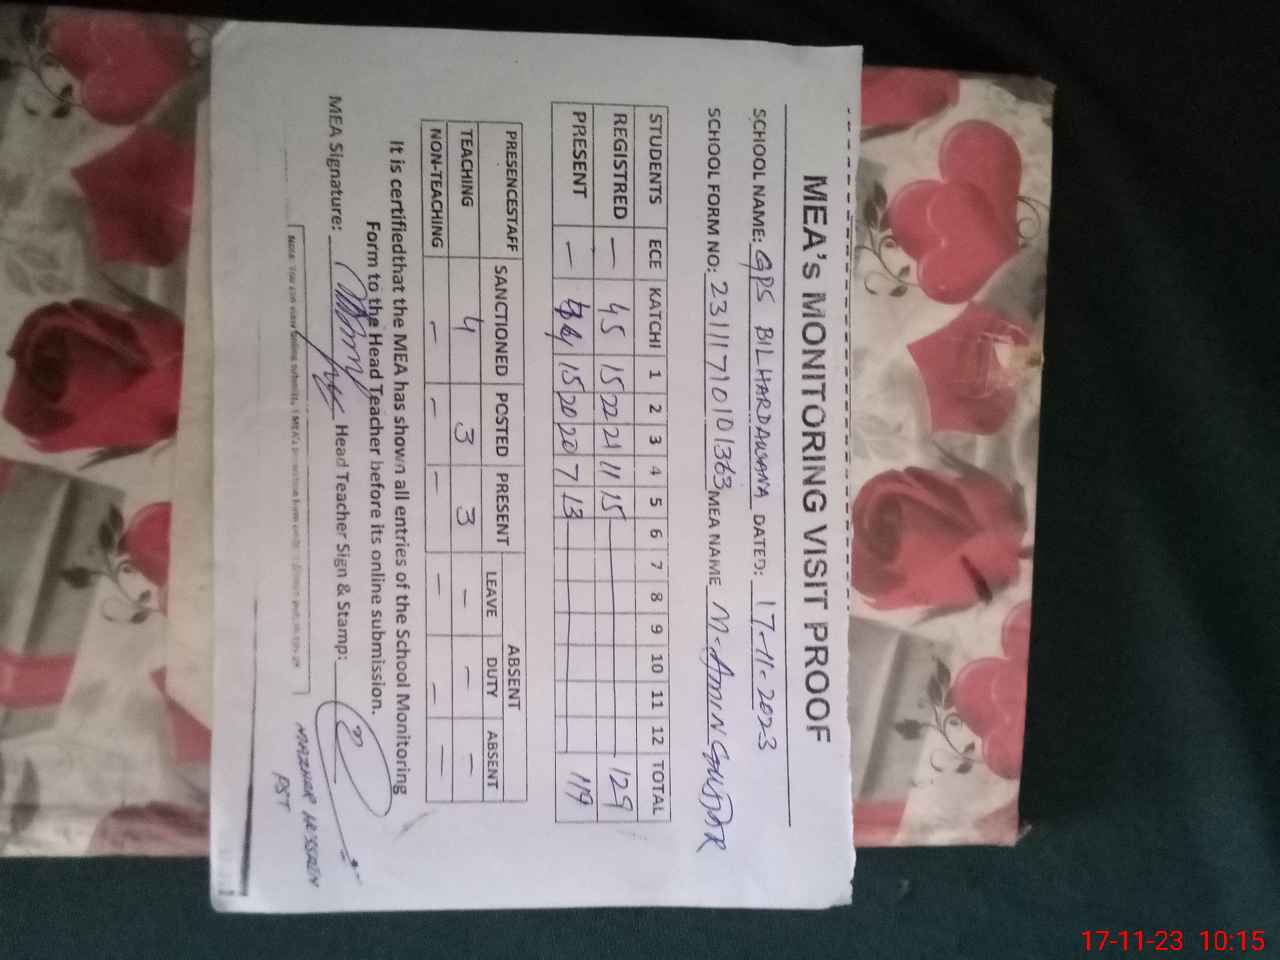 MEA's MONITORING VISIT PROOF
SCHOOL NAME: GPS BILHARDAUSANA DATED: 17-11-2023
SCHOOL FORM NO: 23111710101363 MEA NAME M. AMIN GUJJAR
STUDENTS ECE KATCHI 1 2 3 4 5 6 7 8 9 10 11 12 TOTAL
REGISTRED — 45 15 22 21 11 15 129
PRESENT — 15 20 20 7 13 119
PRESENCESTAFF SANCTIONED POSTED PRESENT ABSENT
LEAVE DUTY ABSENT
TEACHING 4 3 3 — — —
NON-TEACHING — — — — — —
It is certifiedthat the MEA has shown all entries of the School Monitoring
Form to the Head Teacher before its online submission.
MEA Signature: Head Teacher Sign & Stamp:
MAZHAR HUSSAIN
PST
Note: You can view online
17-11-23 10:15